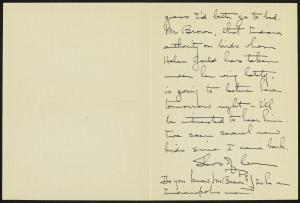 guess I'd better go to bed.
Mr Brown, that Indiana
authority on birds whom
Helen Guild has taken
under her wing lately,
is going to lecture here
tomorrow night - I'll
be interested to hear him.
I've seen several new
birds since I came back.
Do you know Mr Brown? Is he an
Indianapolis man?